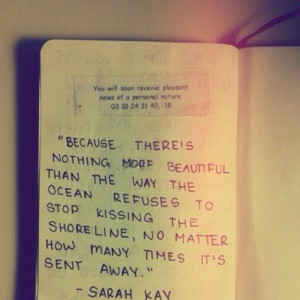 You will soon receive pleasant
news of a personal nature.
03 10 24 31 40, 18
"BECAUSE THERE'S
NOTHING MORE BEAUTIFUL
THAN THE WAY THE
OCEAN REFUSES TO
STOP KISSING THE
SHORELINE, NO MATTER
HOW MANY TIMES IT'S
SENT AWAY."
- SARAH KAY